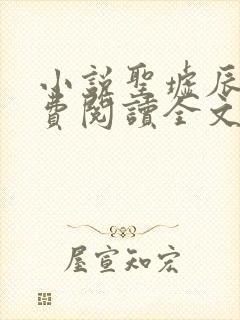 小説聖墟辰
費閱讀全文
屋宣知宏